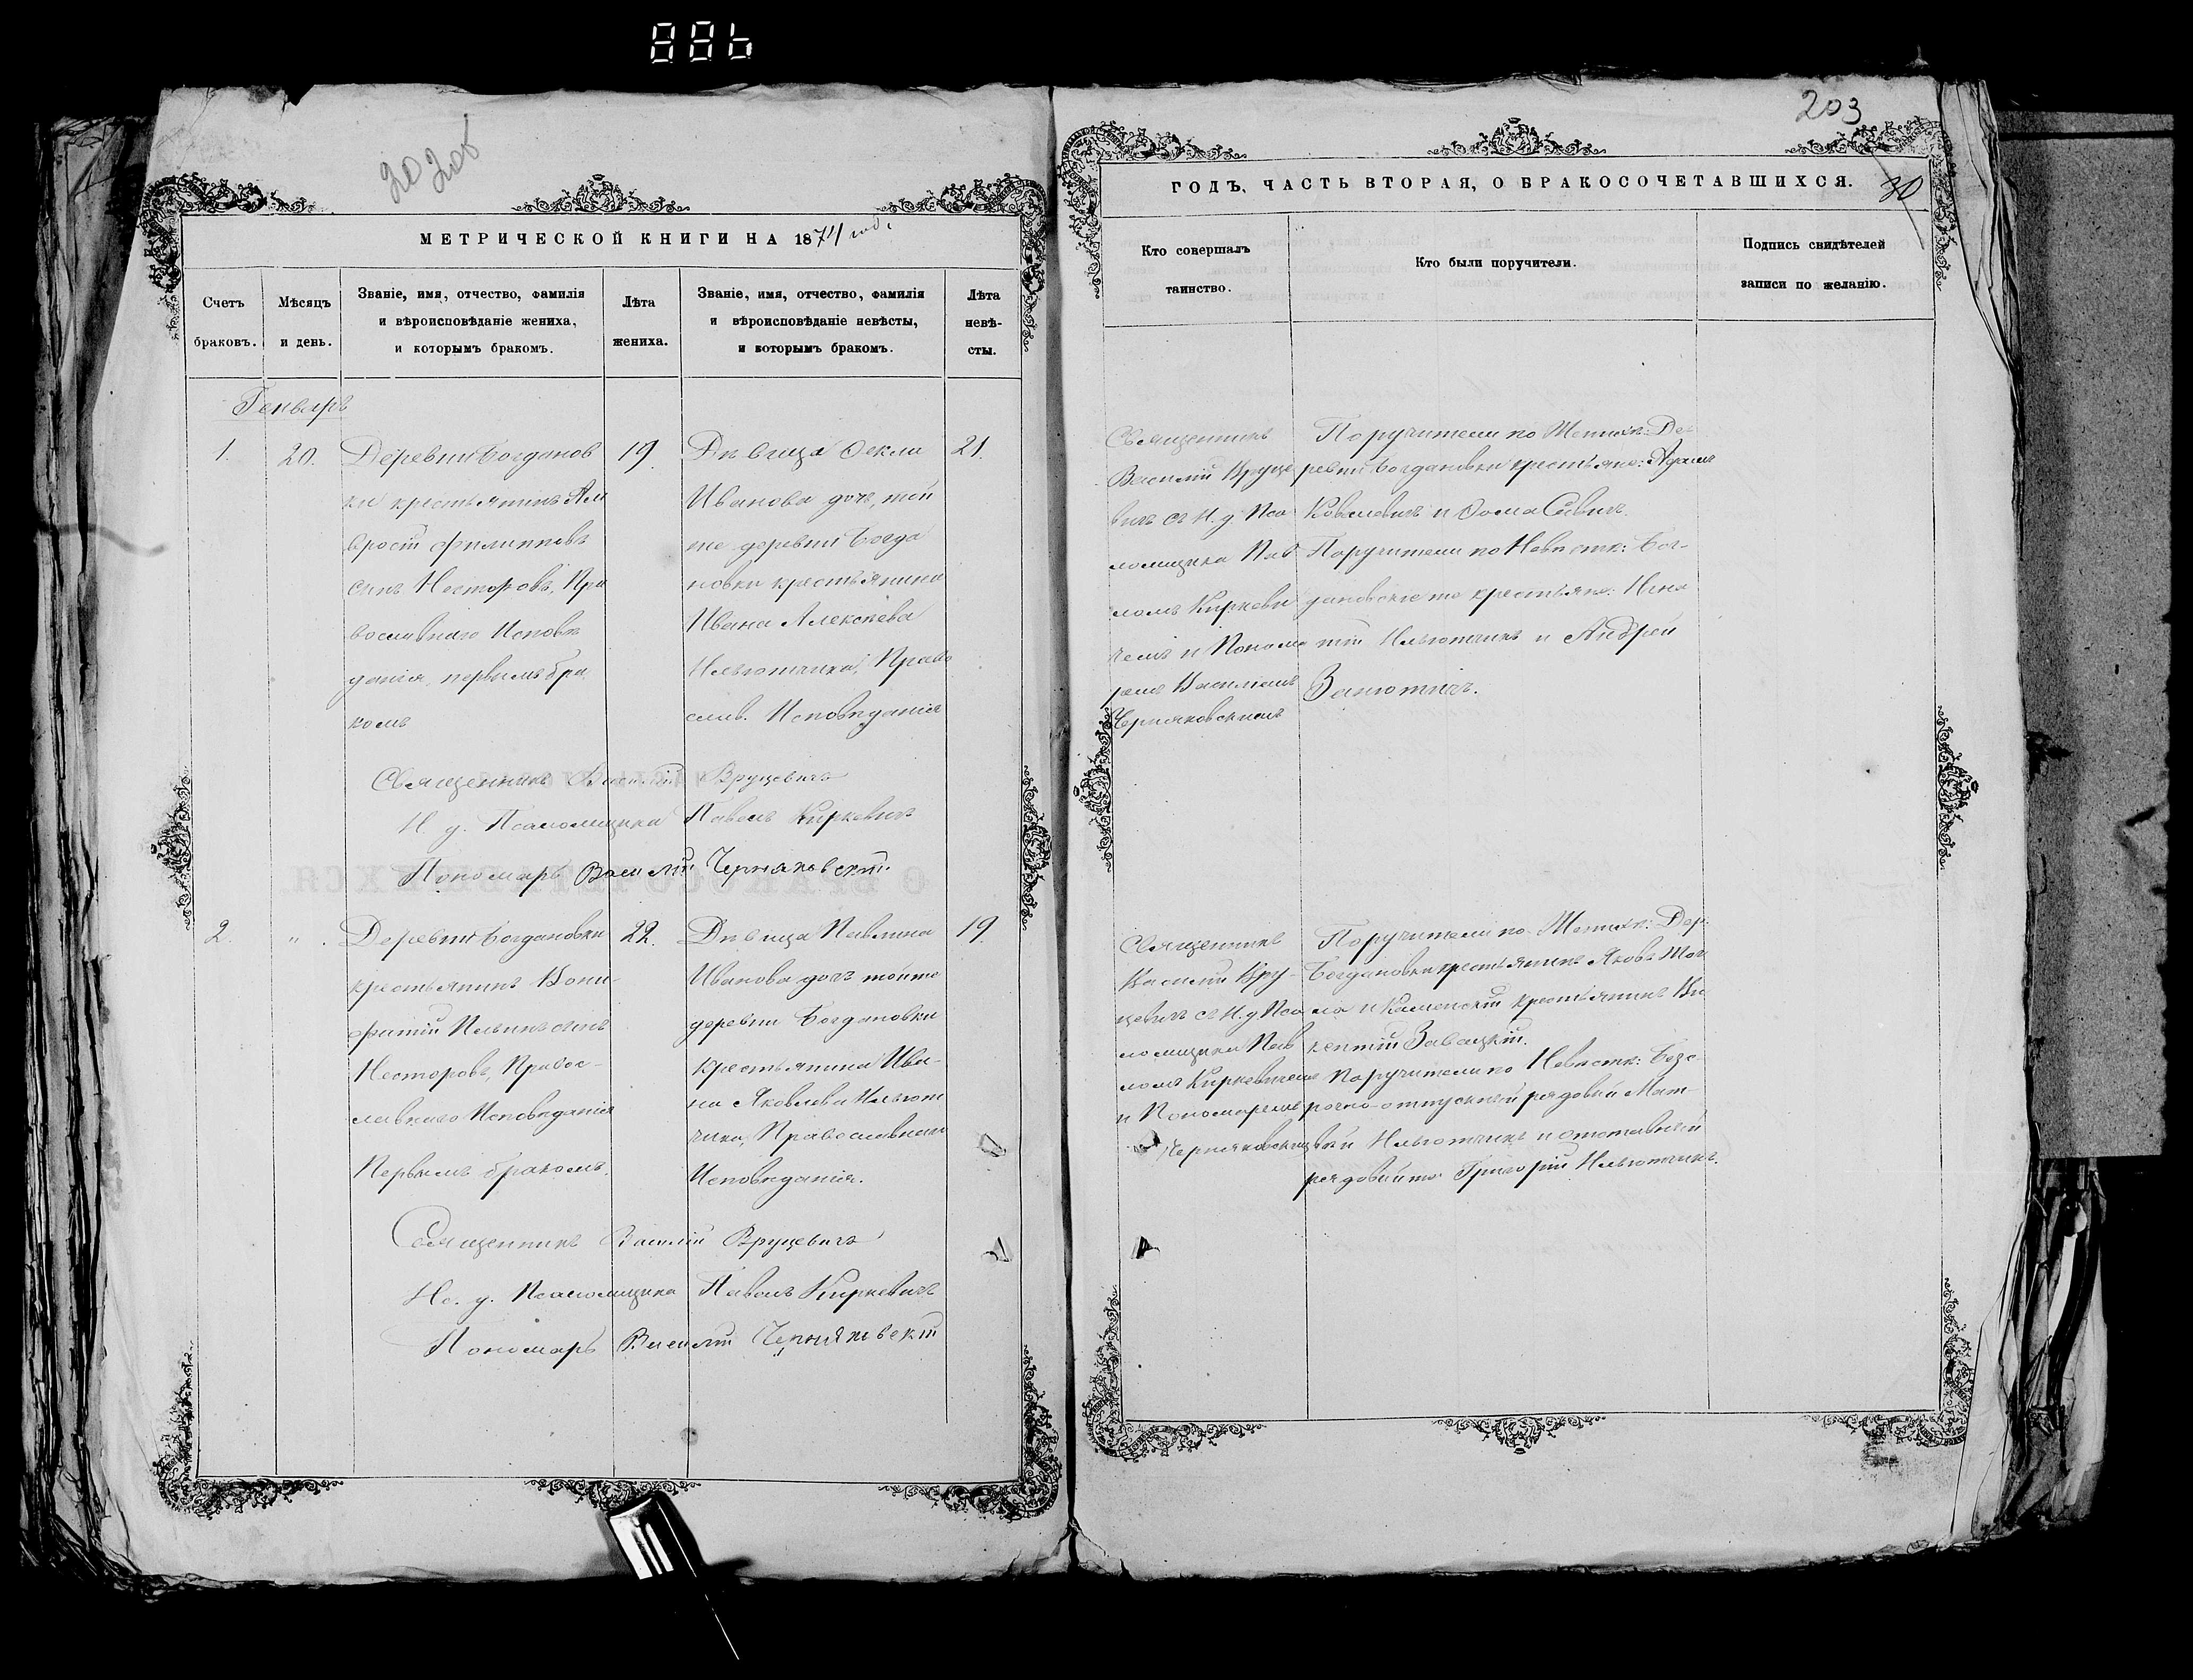 203
30
МЕТРИЧЕСКОЙ КНИГИ НА 1874 год.
Счетъ
браковъ.
Мѣсяцъ
и день.
Званіе, имя, отчество, фамилія
и вѣроисповѣданіе жениха,
и которымъ бракомъ.
Лѣта
жениха.
Званіе, имя, отчество, фамилія
и вѣроисповѣданіе невѣсты,
и которымъ бракомъ.
Лѣта
невѣ-
сты.
Генварь
1.
20.
Деревни Богданов
ки крестьянинъ Ам
вросій Филипповъ
сынъ Несторовъ, Пра
вославнаго Исповѣ
данія, первымъ бра
комъ
19.
Дѣвица Ѳекла
Иванова дочь, той
же деревни Богда
новки крестьянина
Ивана Алексѣева
Ильютчика, Право
слав. Исповѣданія
21.
Священникъ Василій Вруцевичъ
И. д. Псаломщика Павелъ Киркевичъ
Пономарь Василій Черняковскій.
2.
"
Деревни Богдановки
крестьянинъ Вони-
фатій Ильинъ сынъ
Несторовъ, Правос-
лавнаго Исповѣданія
Первымъ бракомъ.
22.
Дѣвица Павлина
Иванова дочь той же
деревни Богдановки
крестьянина Ива-
на Яковлева Ильют
чика, Православнаго
Исповѣданія.
19.
Священникъ Василій Вруцевичъ
Ис. д. Псаломщика Павелъ Киркевичъ
Пономарь Василій Черняковскій
ГОДЪ, ЧАСТЬ ВТОРАЯ, О БРАКОСОЧЕТАВШИХСЯ.
Кто совершалъ
таинство.
Кто были поручители.
Подпись свидѣтелей
записи по желанію.
Священникъ
Василій Вруце
вичъ съ И. д. Пса
ломщика Пав
ломъ Киркеви
чемъ и Понома
ремъ Василіемъ
Черняковскимъ
Поручители по Женихѣ: Де-
ревни Богдановки крестьяне: Адамъ
Ковалевичъ и Ѳома Савичъ.
Поручители по Невѣстѣ: Бог-
дановскіе же крестьяне: Игна
тій Ильютчикъ и Андрей
Священникъ
Василій Вру-
цевичъ съ И. д. Пса
ломщика Пав
ломъ Киркевичемъ
и Пономаремъ
Черняковскимъ
Поручители по Женихѣ: Дер.
Богдановки крестьянинъ Яковъ
и Каменскій крестьянинъ Ви
кентій Завацкій.
Поручители по Невѣстѣ: Безс
рочно-отпускный рядовый Мат
вѣй Ильютчикъ и отставный
рядовый же Григорій Ильютчикъ.